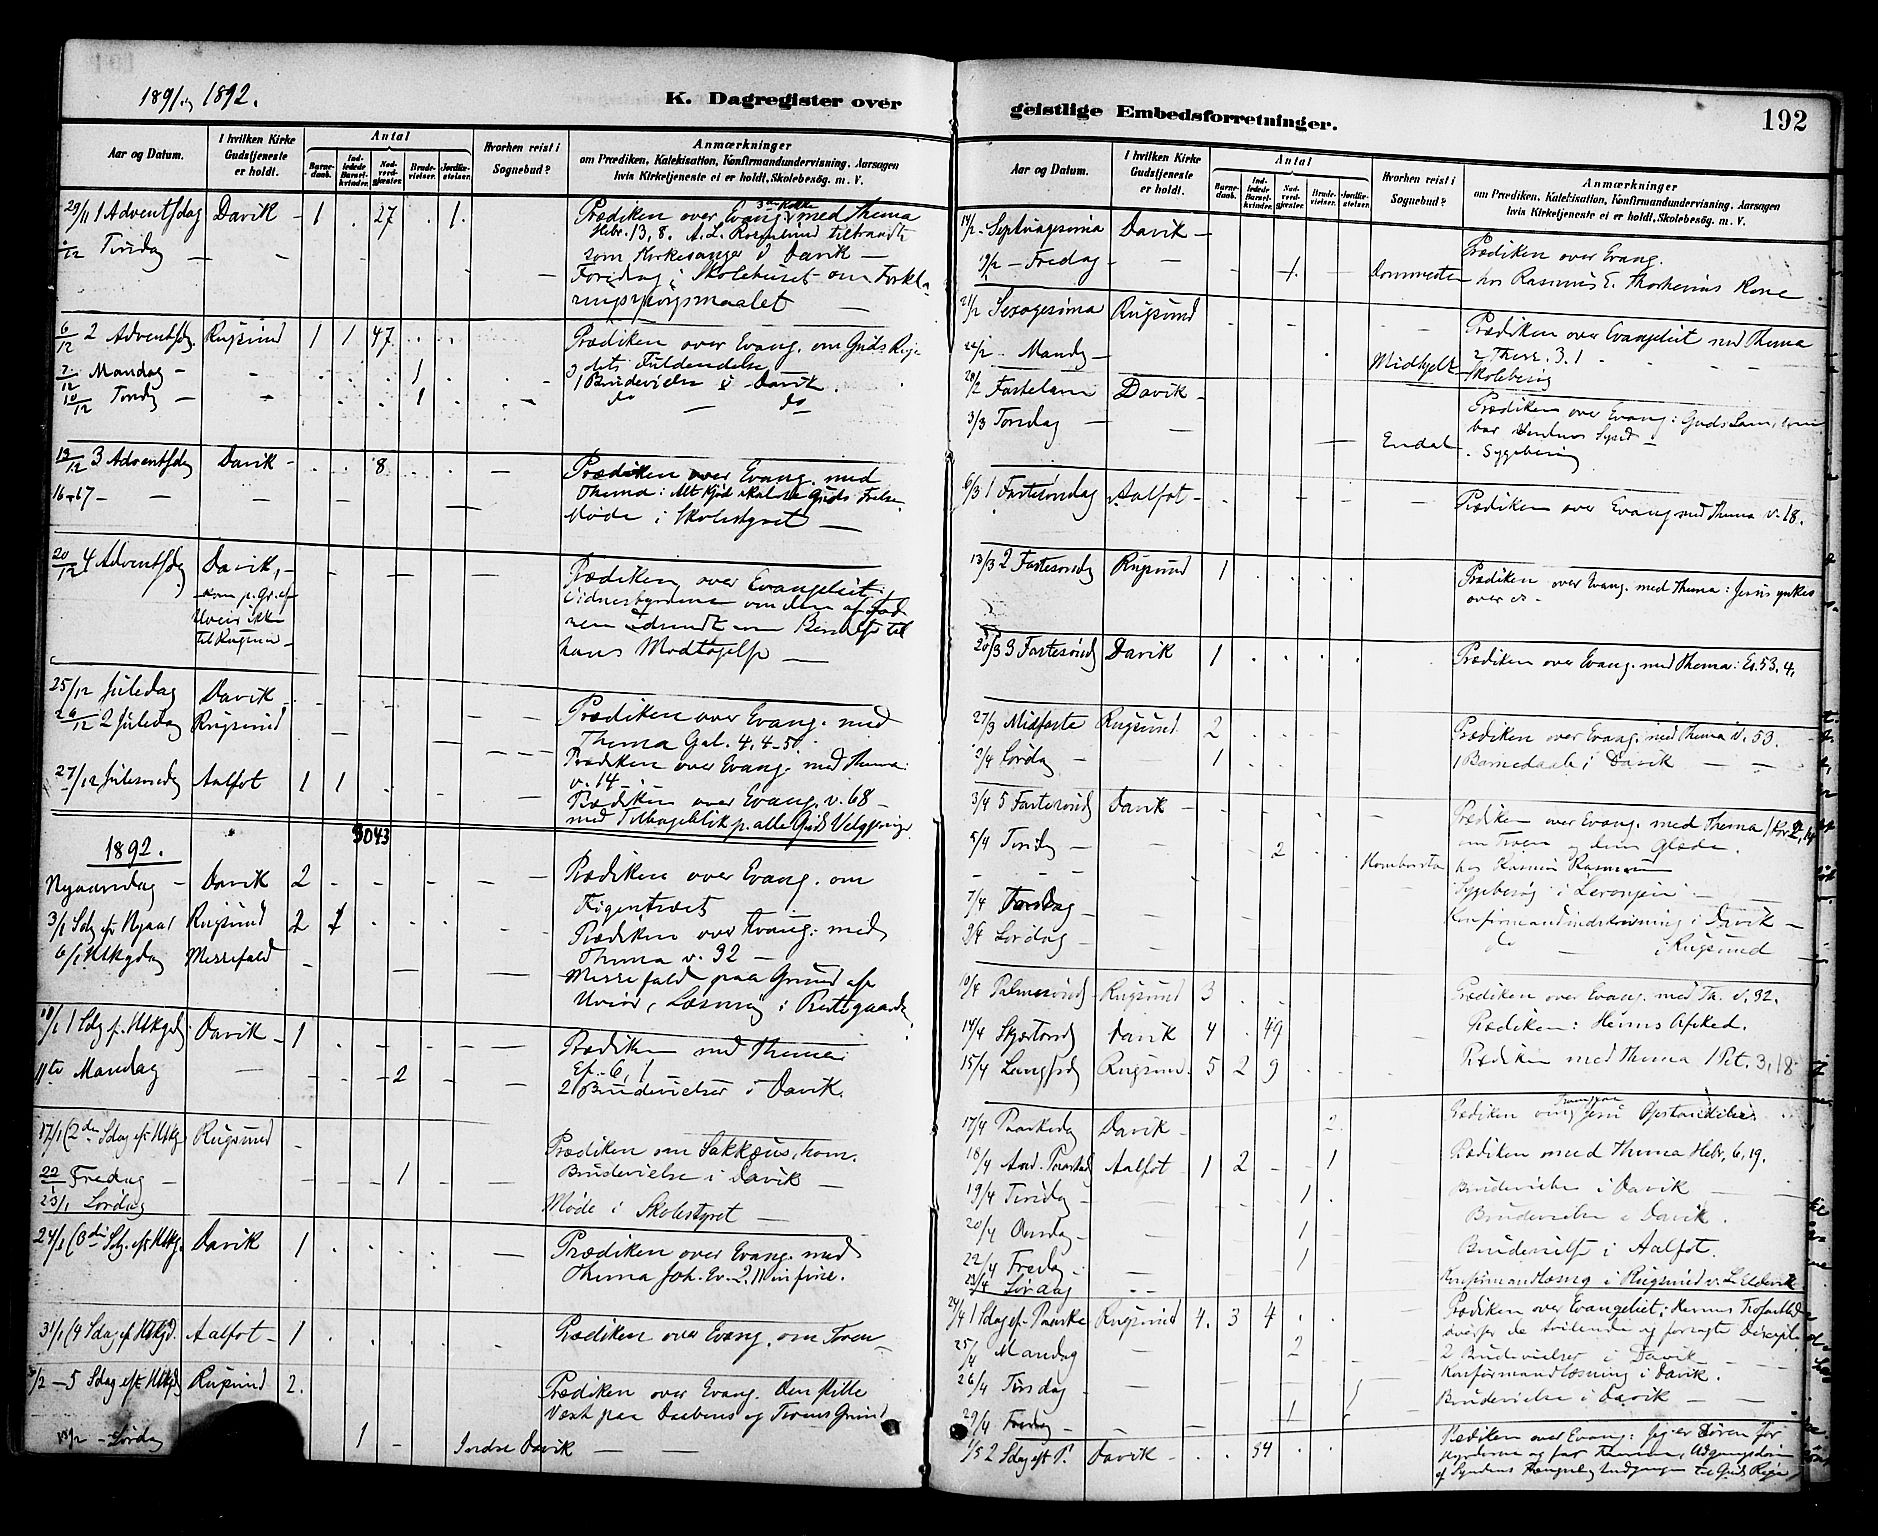 1891 og 1892.
K. Dagregister over
Aar og Datum.
I hvilken Kirke Gudstjeneste er holdt.
Antal
Barne-daab.
Ind-ledede Barsel-kvinder.
Nad-verd-gjester.
Brude-vielser.
Jordfæ-stelser.
Hvorhen reist i Sognebud?
Anmærkninger
om Prædiken, Katekisation, Konfirmandundervisning, Aarsagen
hvis Kirketjeneste ei er holdt, Skolebesøg. m. V.
29/11 1 Adventsdag Davik - 1 . 27 . . 1. Prædiken over Evang. med Thema
Hebr. 13, 8. A. L. tiltraadte
/12 Tirsdag - som Kirkesanger i Davik -
Foredrag i Skolehuset om Forkla-
ringsspørgsmaalet
6/12 2 Adventsdg. Rugsund 1 1 47 . . Prædiken over Evang. om Guds Rige
dets Fuldendelse
7/12 Mandag - - 1 . 1 Brudevielse i Davik.
10/12 Torsdg - 1 do - do
13/12 3 Adventsdg Davik - . . 8. Prædiken over Evang. med
Thema: Alt Kjød skal se Guds Frelse
16-17 - - Møde i Skolestyret -
20/12 4 Adventsdg Davik, - Prædiken over Evangeliet:
kom p. Gr. af Vidnesbyrdene om den af Fad-
Uveir ikke
til Rugsund - hans Modtagelse -
25/12 Juledag Davik Prædiken over Evang. med
Thema Gal. 4, 4-5.
26/12 2 Juledag Rugsund Prædiken over Evang. med Thema
v. 14 -
27/12 Aalfot - 1 1 Prædiken over Evang. v. 68 -
med Tilbageblik p. alle Guds Velgjerninger
3043
1892.
Nyaarsdag - Davik 2 Prædiken over Evang. om
Figentræet
3/1 Sdg ef Nyaar Rugsund 2 1 Prædiken over Evang. med
Thema v. 32 -
6/1 Hlkgdag Messefald - Messefald paa Grund af
Uveir, Læsning i Prestgaarde
10/1 1 Sdg ef. Hlkgdg Davik - 1 Prædiken med Thema:
Ef. 6, 1
11te Mandag - 2 2 Brudevielser i Davik.
17/1 (2den Sdag eft Hlkg Rugsund - Prædiken om Sakkæus,
22/1 Fredag - 1 Brudevielse i Davik -
23/1 Lørdag Møde i Skolestyret -
24/1 (3die Sdg. eft Hlkg. Davik 1 Prædiken over Evang. med
Thema Joh. Ev. 2, 11 in fine.
31/1 (4 Sdag ef Hlkgd. Aalfot - 1 Prædiken over Evang. om Troen -
/2 - 5 Sdag eft Hlkgd Rugsund 2. Prædiken over Evang. Den stille
Vext paa Daabens og Troens Grund
13/2 - Lørdag 1 - Indre Davik - -
geistlige Embedsforretninger.
192
Aar og Datum.
I hvilken Kirke Gudstjeneste er holdt.
Antal
Barne-daab.
Ind-ledede Barsel-kvinder.
Nad-verd-gjester.
Brude-vielser.
Jordfæ-stelser.
Hvorhen reist i Sognebud?
Anmærkninger
om Prædiken, Katekisation, Konfirmandundervisning, Aarsagen
hvis Kirketjeneste ei er holdt, Skolebesøg. m. V.
14/2 - Septuagesima Davik - Prædiken over Evang.
19/2 - Fredag - 1. hos Rasmus E.
21/2 Sexagesima Rugsund Prædiken over Evangeliet med Thema
2 Thess. 3. 1
22/2 - Mandg - Midtgjelt - Skolebesøg
28/2 Fastelavn Davik - Prædiken over Evang: Guds Lam, som
bar Verdens Synd -
3/3 Torsdag - Endal - Sygebesøg
6/3 1 Fastesøndag Aalfot - Prædiken over Evang med Thema v. 18.
13/3 2 Fastesøndg Rugsund 1 Prædiken over Evang. med Thema: Jesus ynkes
over os -
20/3 3 Fastesøndg Davik 1 Prædiken over Evang. med Thema: Es. 53, 4.
27/3 Midfaste Rugsund 2 Prædiken over Evang. med Thema v. 53.
2/4 Lørdag - 1 1 Barnedaab i Davik -
3/4 5 Fastesøndg Davik - Prædiken over Evang. med Thema 1 Kor 2, 14
om Troen og dens Glæde.
5/4 Tirsdag - 2 Hornborsta hos Rasmus Rasmussen
Sygebesøg i -
7/4 Torsdag - Konfirmandindskrivning i Davik -
9/4 Lørdag - do - i Rugsund
10/4 Palmesøndg Rugsund 3 Prædiken over Evang. med Th. v. 32.
14/4 Skjærtorsdg Davik 4 . 49 Prædiken: Herrens Afsked.
15/4 Langfrdg Rugsund. 5 2 9 Prædiken med Thema 1 Pet. 3, 18
17/4 Paaskedg Davik - 2. Prædiken om Jesu Opstandelse.
18/4 And. Paaskedag Aalfot - 1 2 - - 1 Prædiken med Thema Hebr. 6, 19.
19/4 Tirsdag - 1 Brudevielse i Davik -
20/4 Onsdag - 1 Brudevielse i Davik.
22/4 Fredag - 1 Brudevielse i Aalfot.
23/4 Lørdag - Konfirmandlæsng i Rugsund v. L. Eldevik
24/4 1 Sdag ef. Paaske Rugsund 4. 3 4 Prædiken over Evangeliet: Herrens Trofasthed
overfor de tvilende og forsagte Disciple
25/4 Mandag - 2 2 Brudevielser i Davik -
26/4 Tirsdag - Konfirmandlæsning i Davik.
29/4 Fredag - 1 Brudevielse i Davik -
1/5 2 Sdag eft P. Davik - . . 54 Prædiken over Evang: Jeg er Døren for
Hyrderne og for Faarene, Udgangsdøren
af Syndens Fængsel og Indgangen til Guds Rige